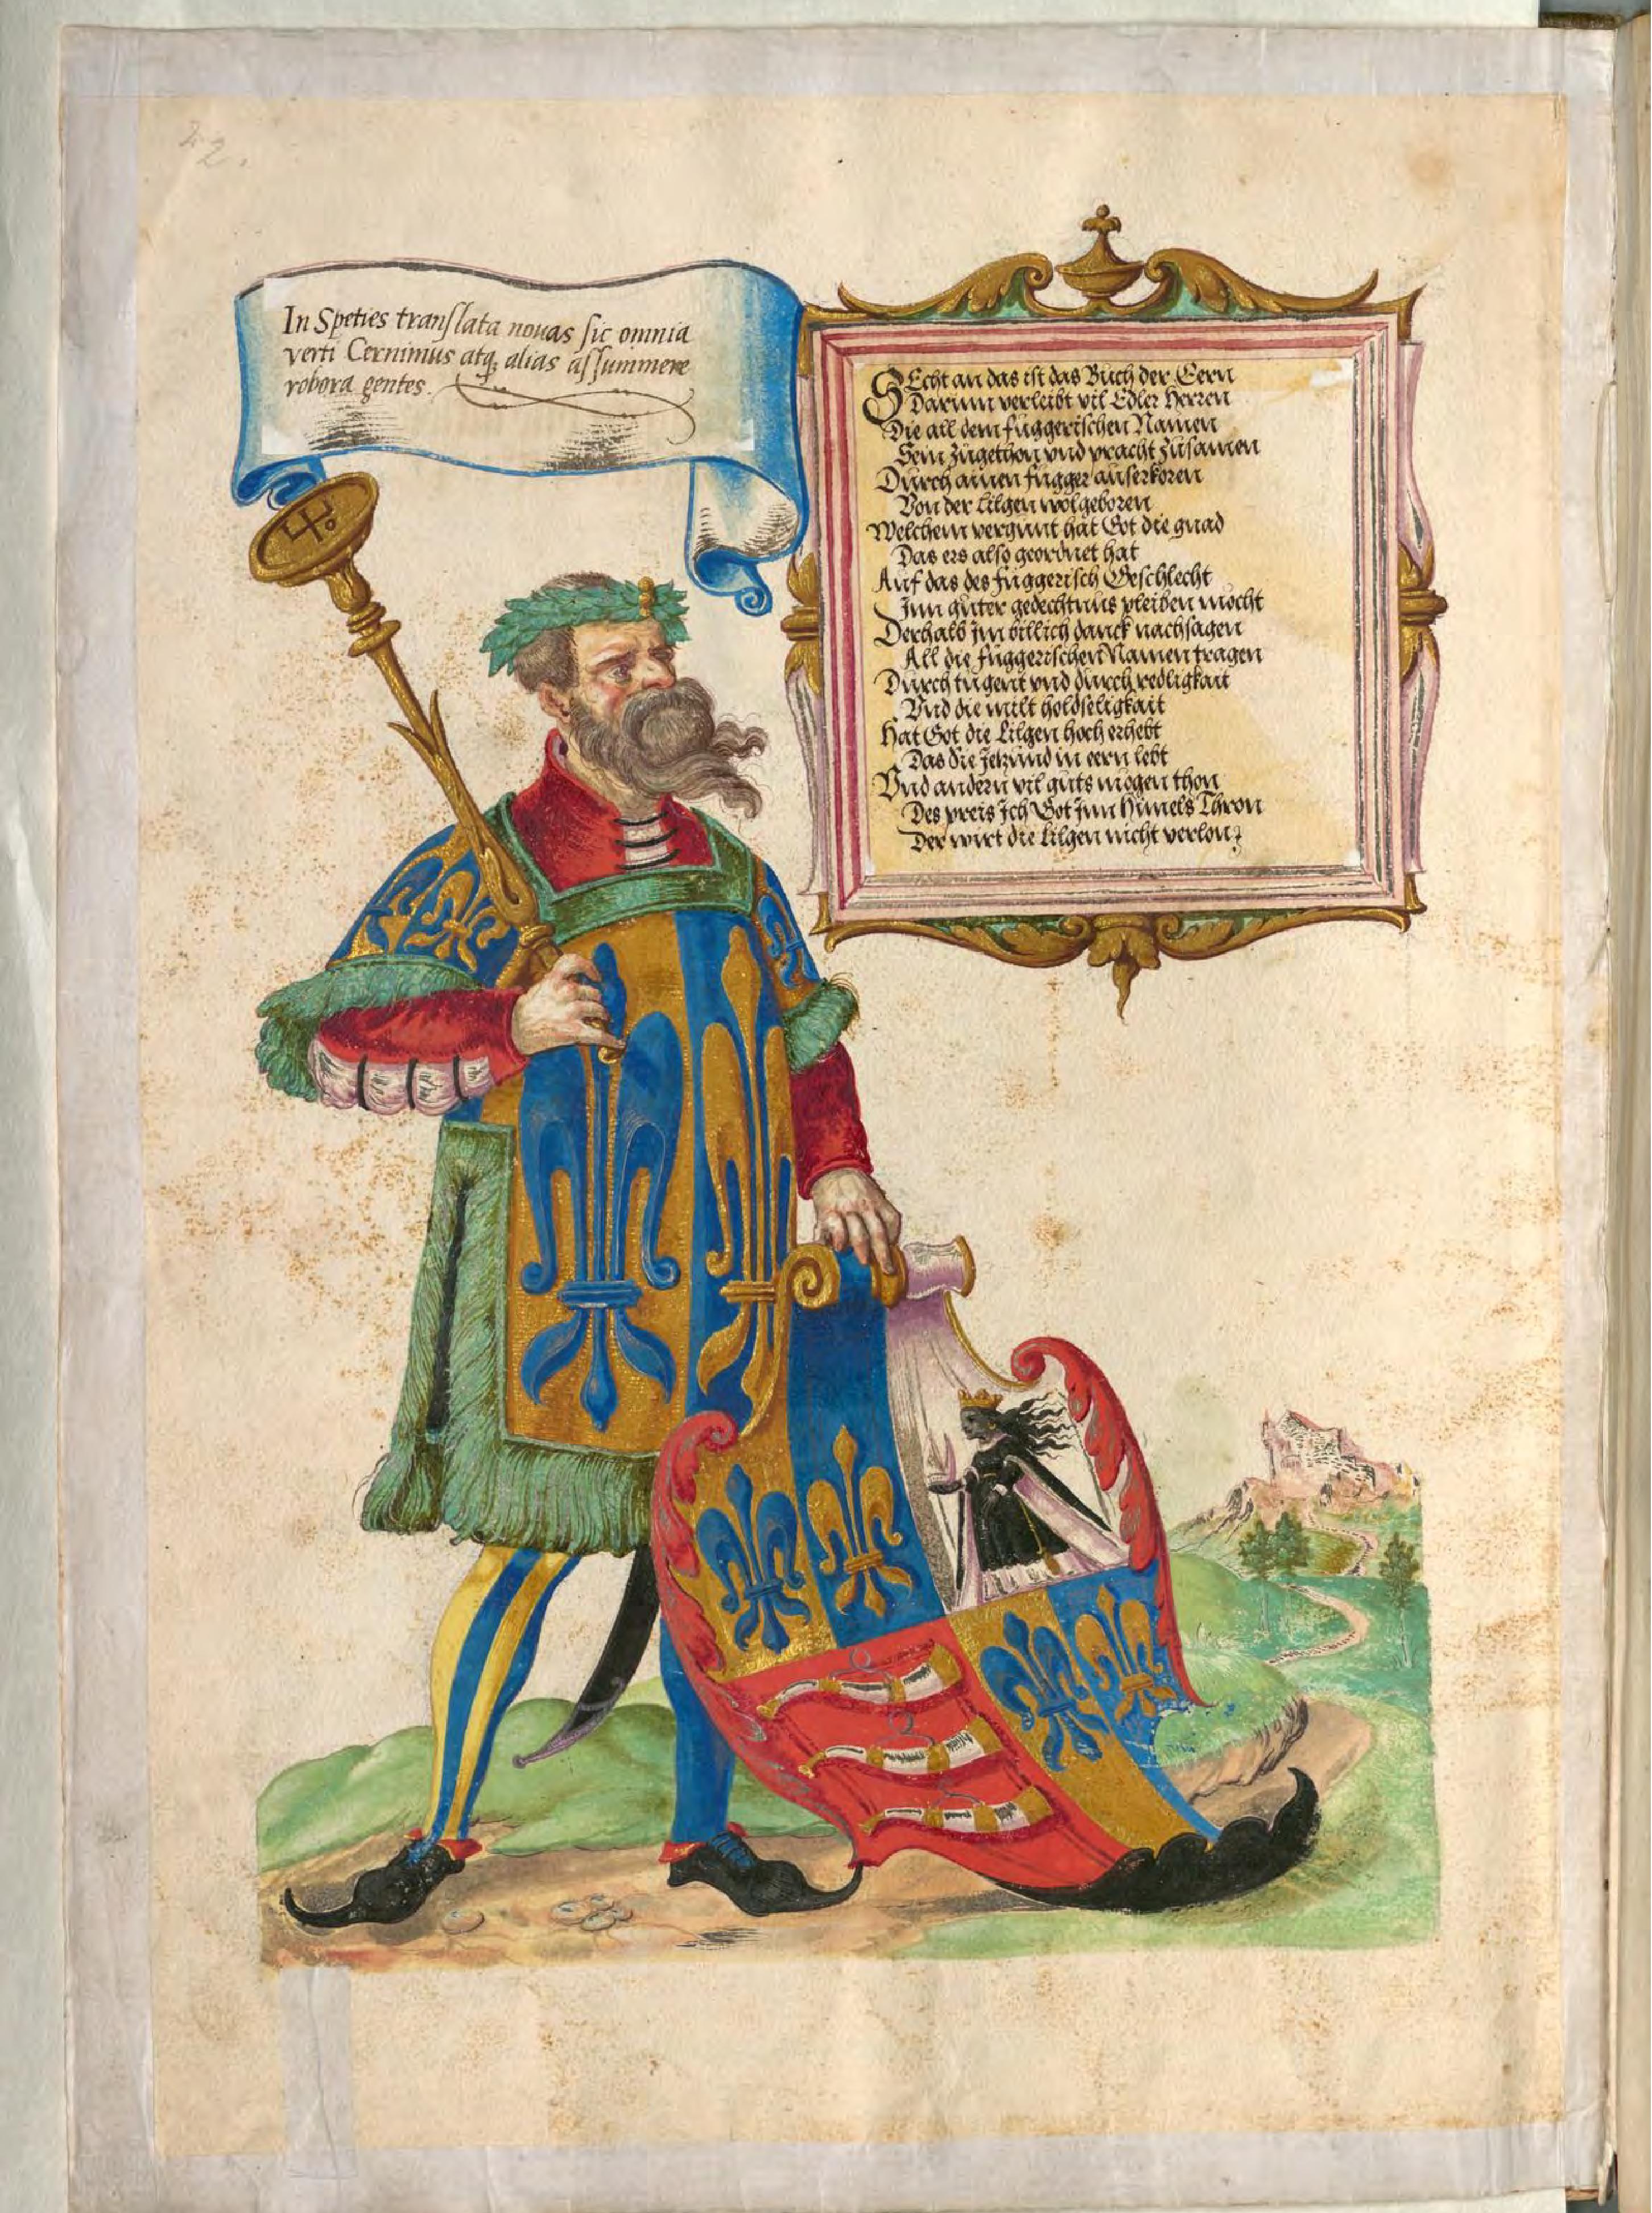 42.
In Speties tranſlata nouas ſic omnia
verti Cernimus atq, alias aſſummere
robora gentes.
SEcht an das ist das Buch der Eern
Darinn verleibt vil Edler Herren
Die all dem fuggerischen Namen
Sein zugethon vnd pracht zusamen
Durch ainen fugger auserkoren
Von der Lilgen wolgeboren
Welchem vergunt hat Got die gnad
Das ers also geordnet hat
Auf das des fuggerisch Geschlecht
Inn guter gedechtnus pleiben mocht
Derhalb Im billich danck nachsagen
All die fuggerischen Namen tragen
Durch tugent vnd durch redligkait
Vnd die milt holdseligkait
Hat Got die Lilgen hoch erhebt
Das die Jetzund in eern lebt
Vnd andern vil guts mogen thon
Des preis Ich Got Inn Himels Thron
Der wirt die Lilgen nicht verlon